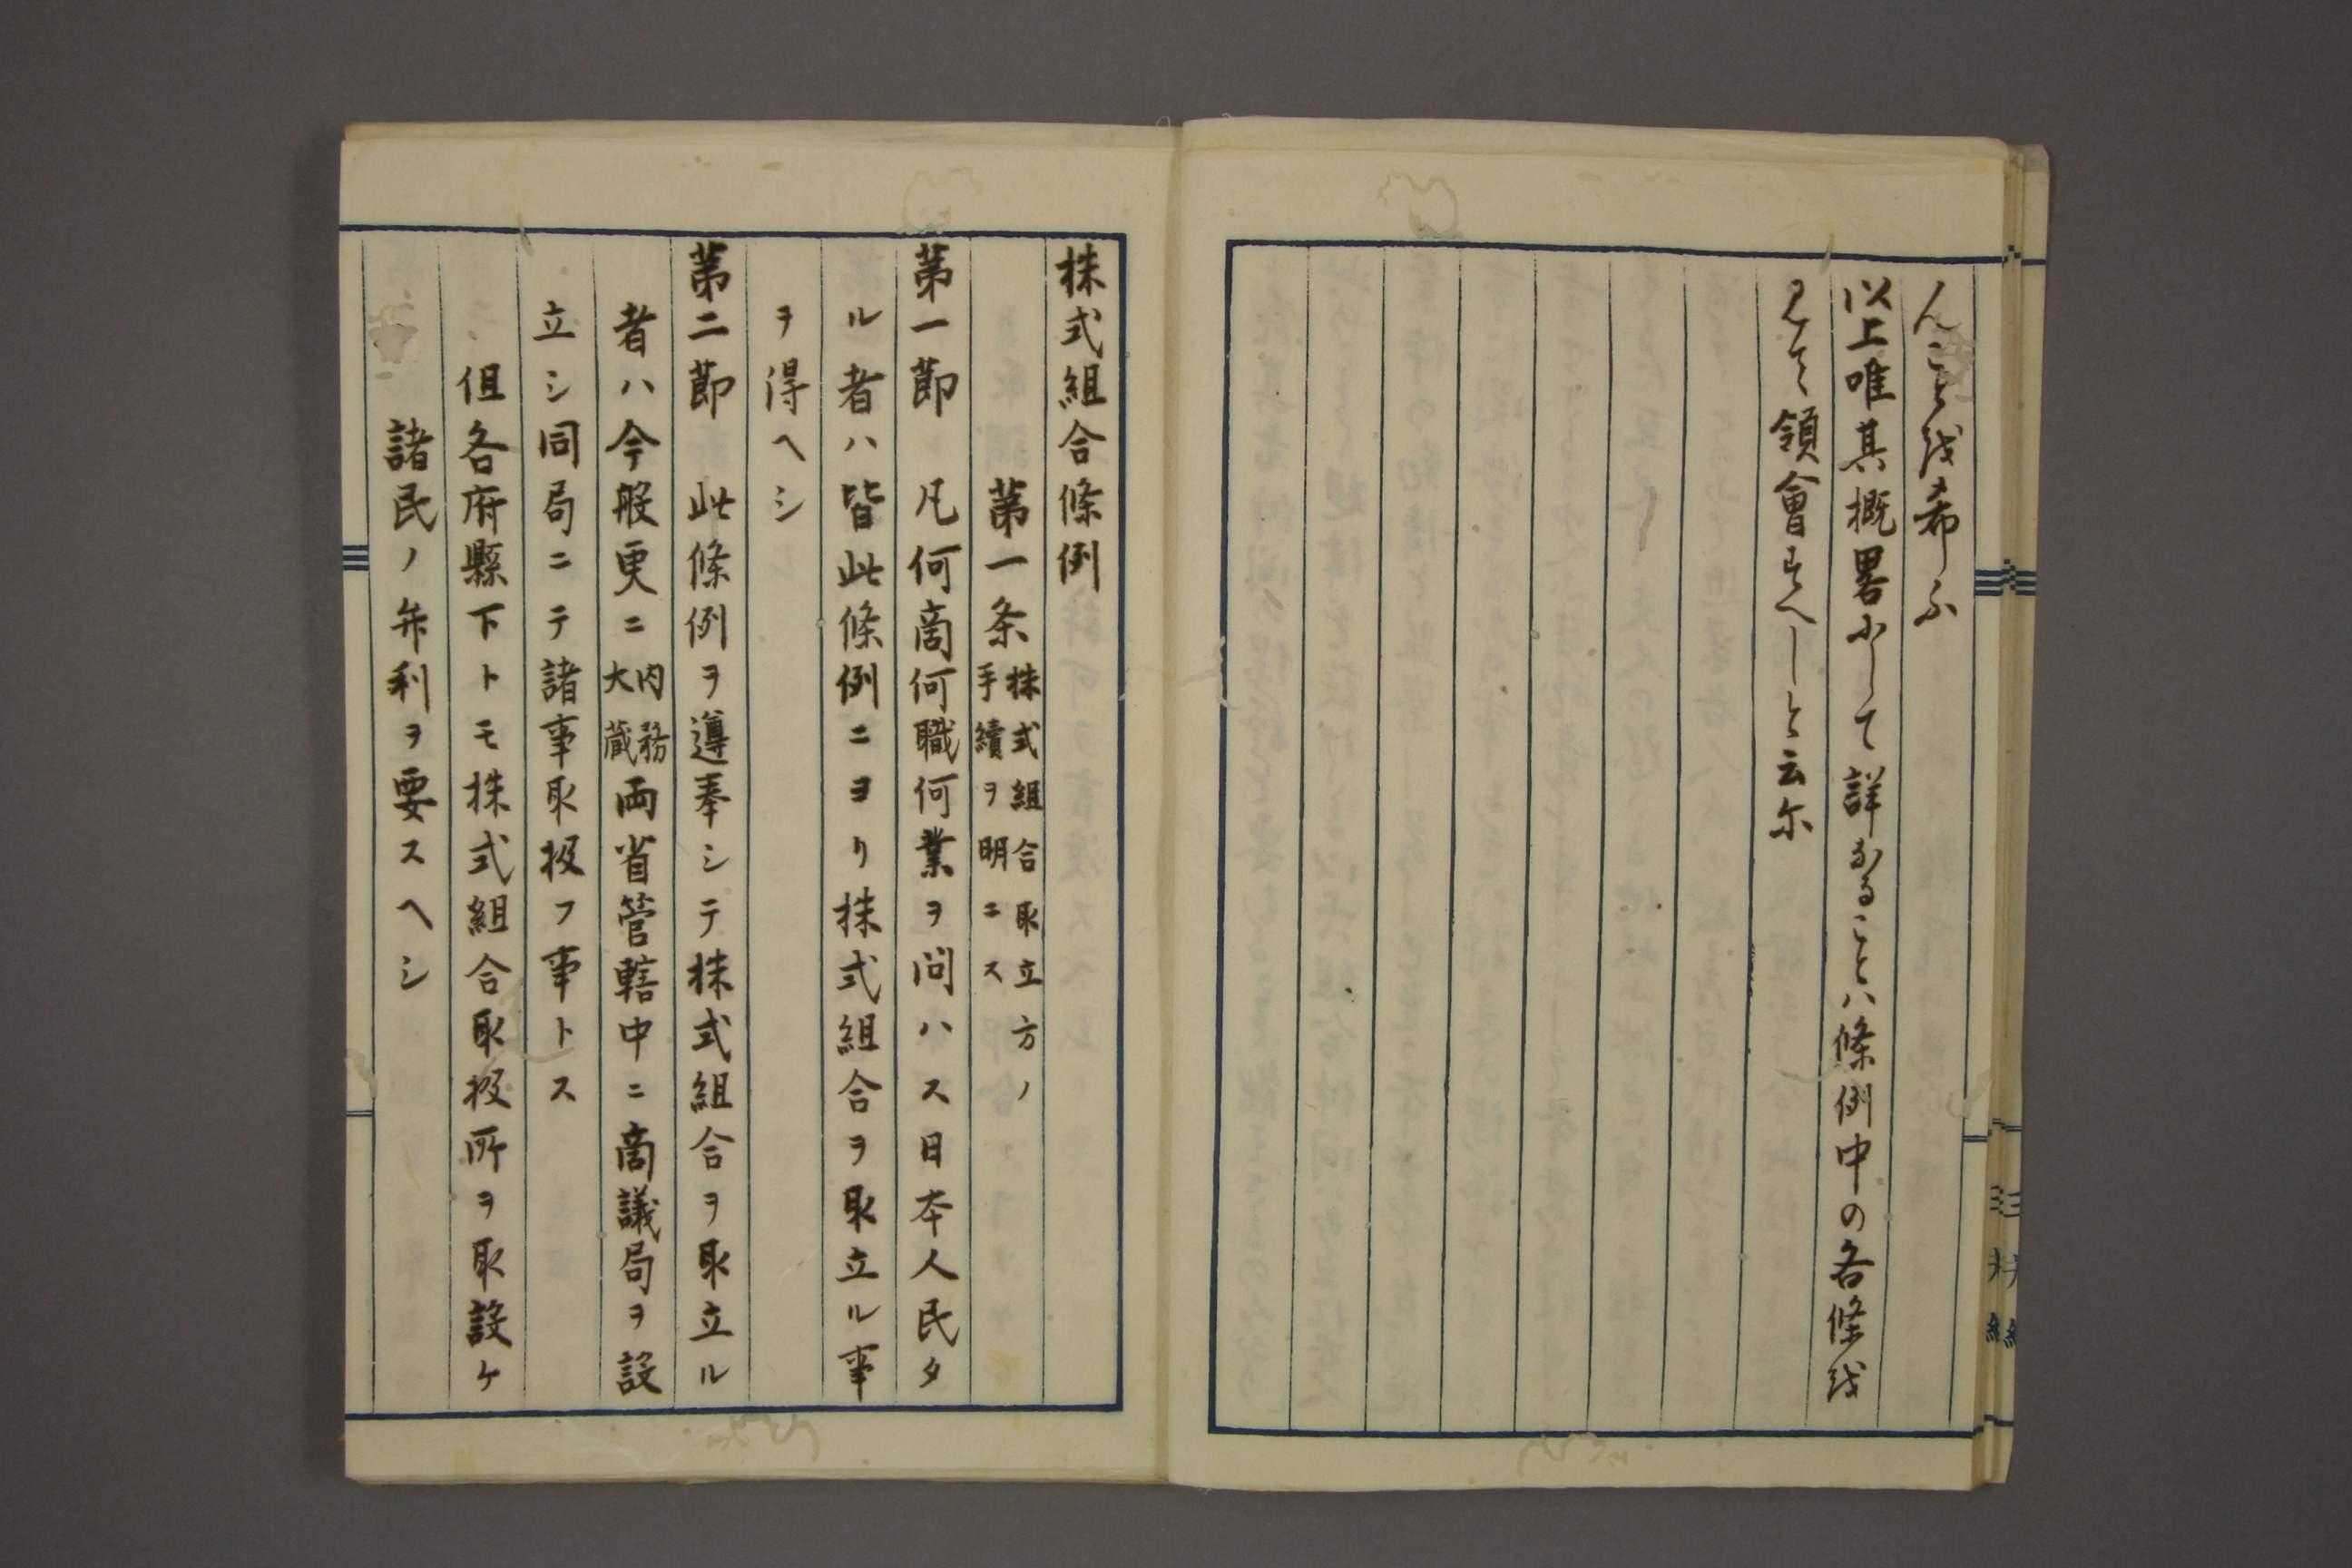 んことを希ふ
以上唯其概畧にして詳なることハ條例中の各條を
見て領會すへしと云尓
株式組合條例
第一条 株式組合取立方ノ
手續ヲ明ニス
第一節 凡何商何職何業ヲ問ハス日本人民タ
ル者ハ皆此條例ニヨリ株式組合ヲ取立ル事
ヲ得ヘシ
第二節 此條例ヲ遵奉シテ株式組合ヲ取立ル
者ハ今般更ニ内務大蔵両省管轄中ニ商議局ヲ設
立シ同局ニテ諸事取扱フ事トス
但各府縣下トモ株式組合取扱所ヲ取設ケ
諸民ノ弁利ヲ要スヘシ